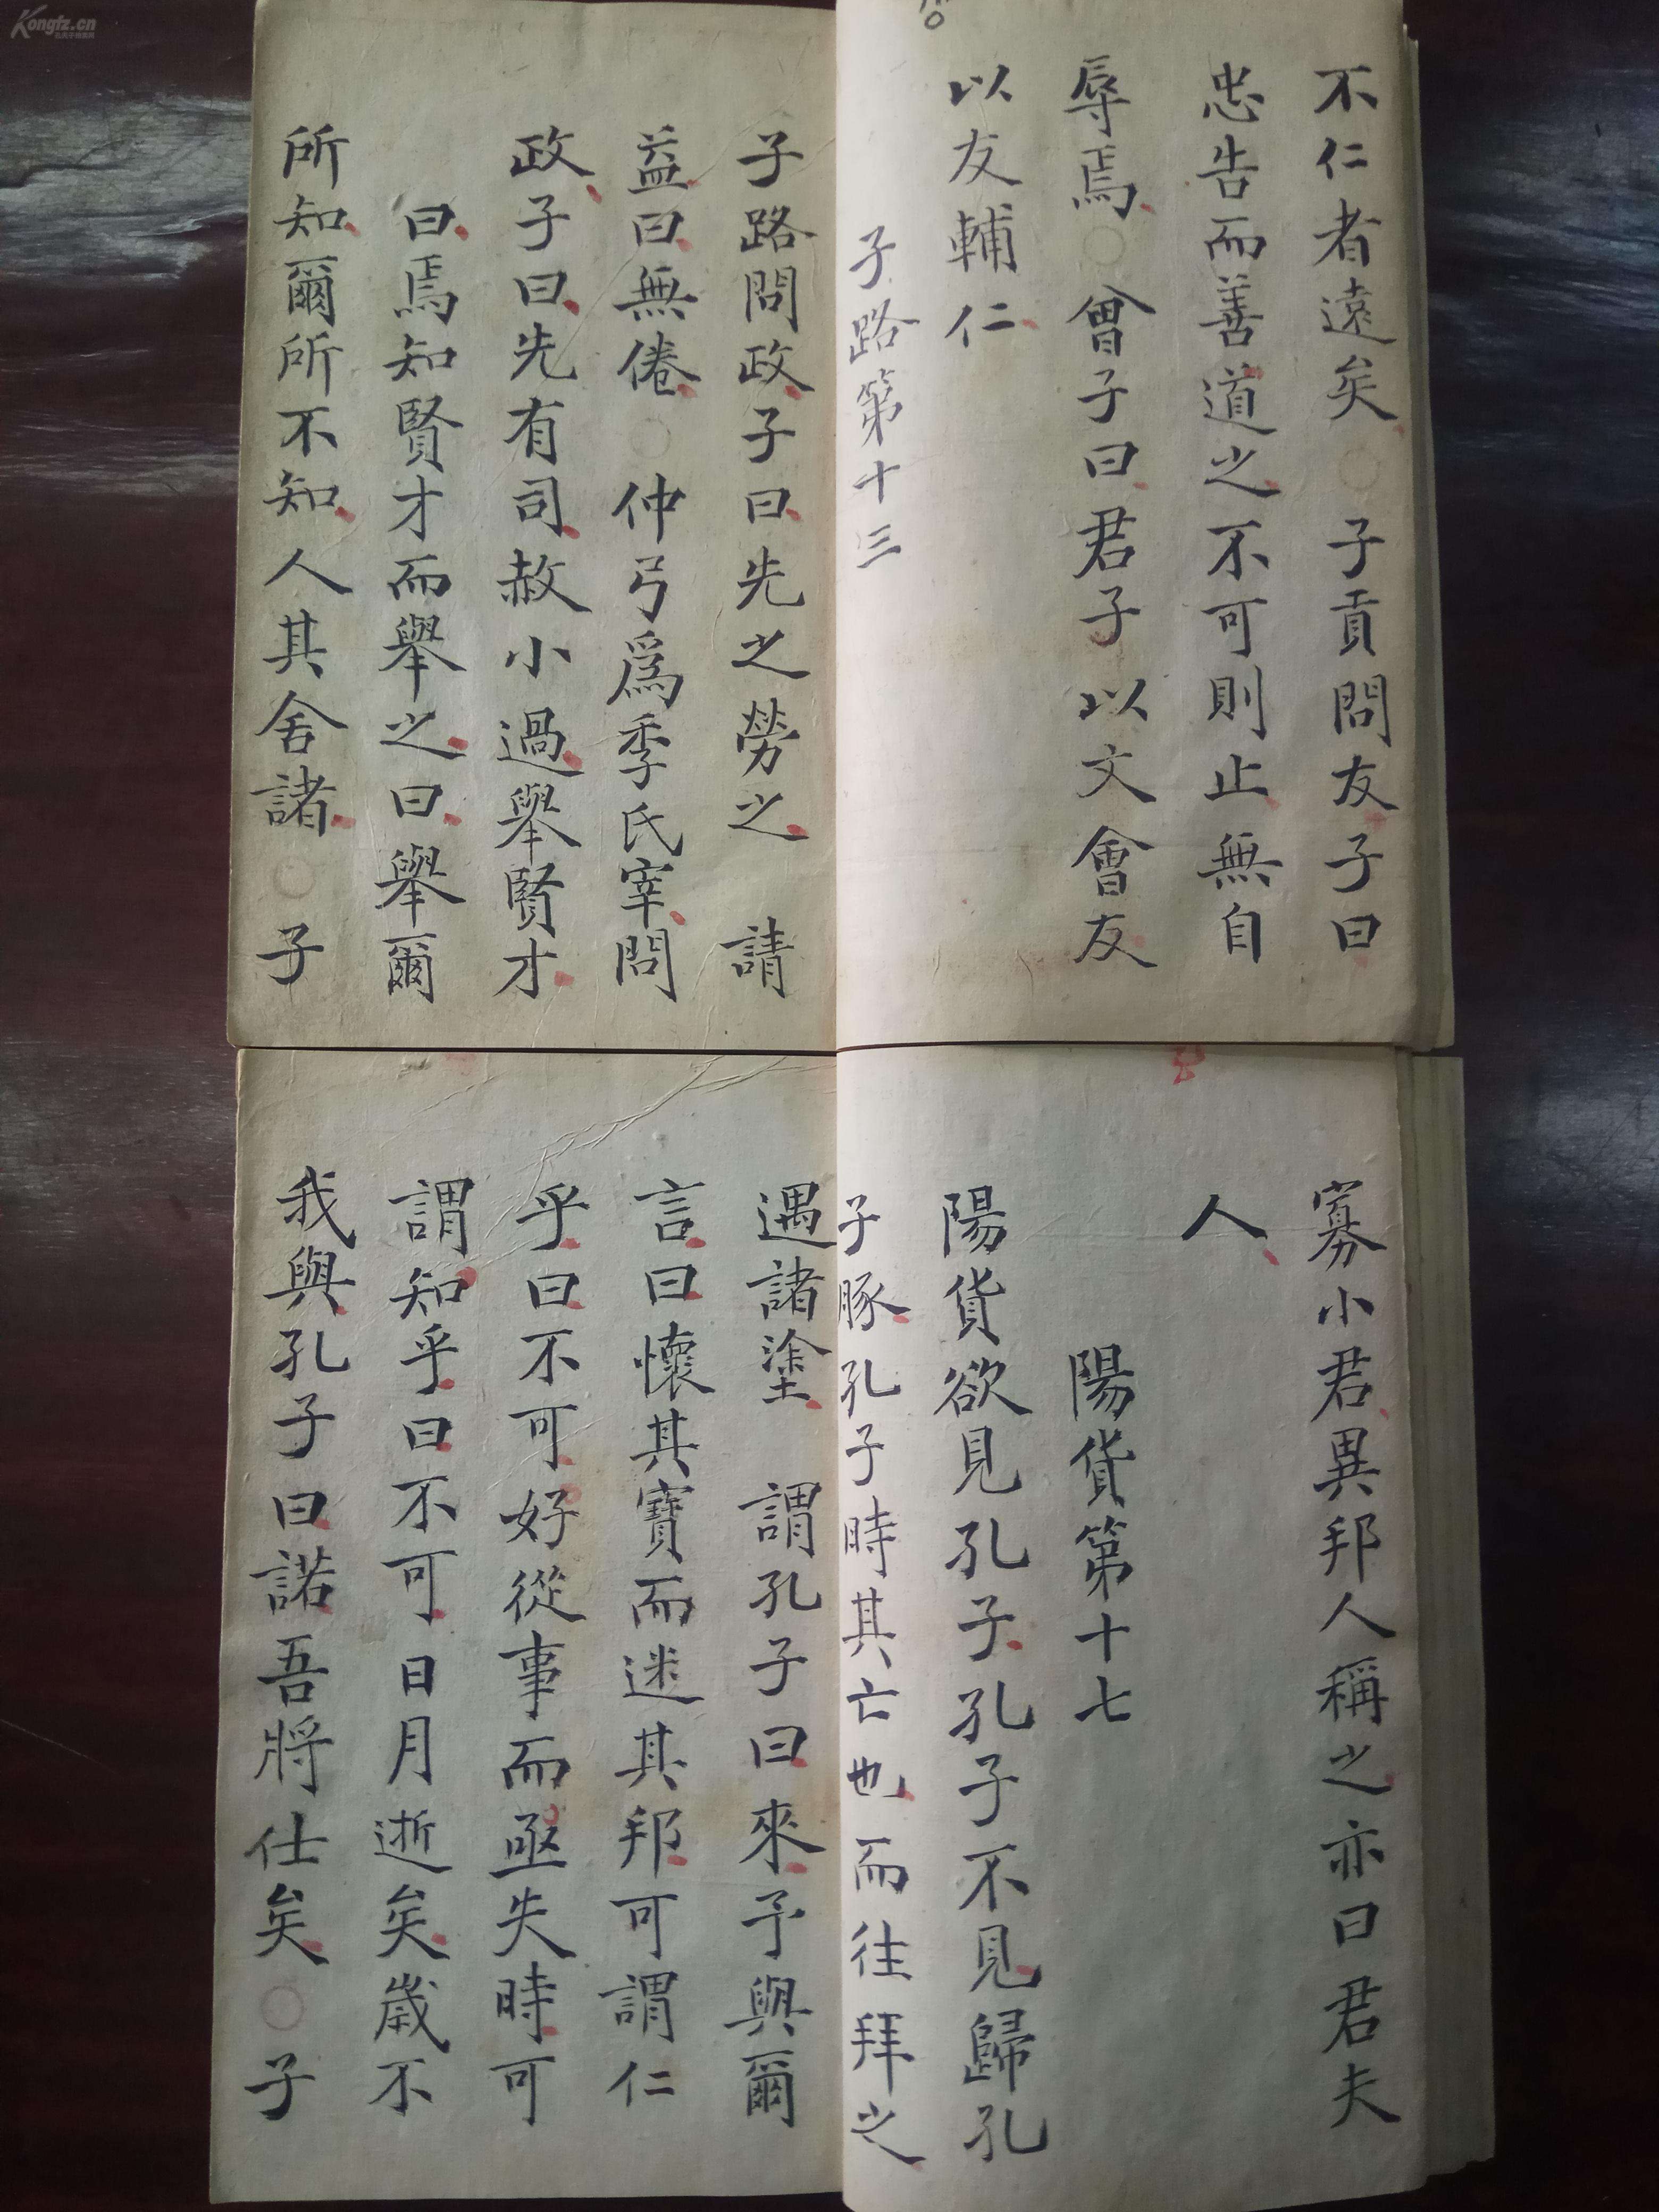 不仁者遠矣○子貢問友子曰
忠告而善道之不可則止無自
辱焉○曾子曰君子以文會友
以友輔仁
子路第十三
子路問政子曰先之勞之請
益曰無倦○仲弓爲季氏宰問
政子曰先有司赦小過舉賢才
曰焉知賢才而舉之曰舉爾
所知爾所不知人其舍諸○子
寡小君異邦人稱之亦曰君夫
人
陽貨第十七
陽貨欲見孔子孔子不見歸孔
子豚孔子時其亡也而往拜之
遇諸塗謂孔子曰來予與爾
言曰懷其寶而迷其邦可謂仁
乎曰不可好從事而亟失時可
謂知乎曰不可日月逝矣歲不
我與孔子曰諾吾將仕矣○子
Kongfz.cn